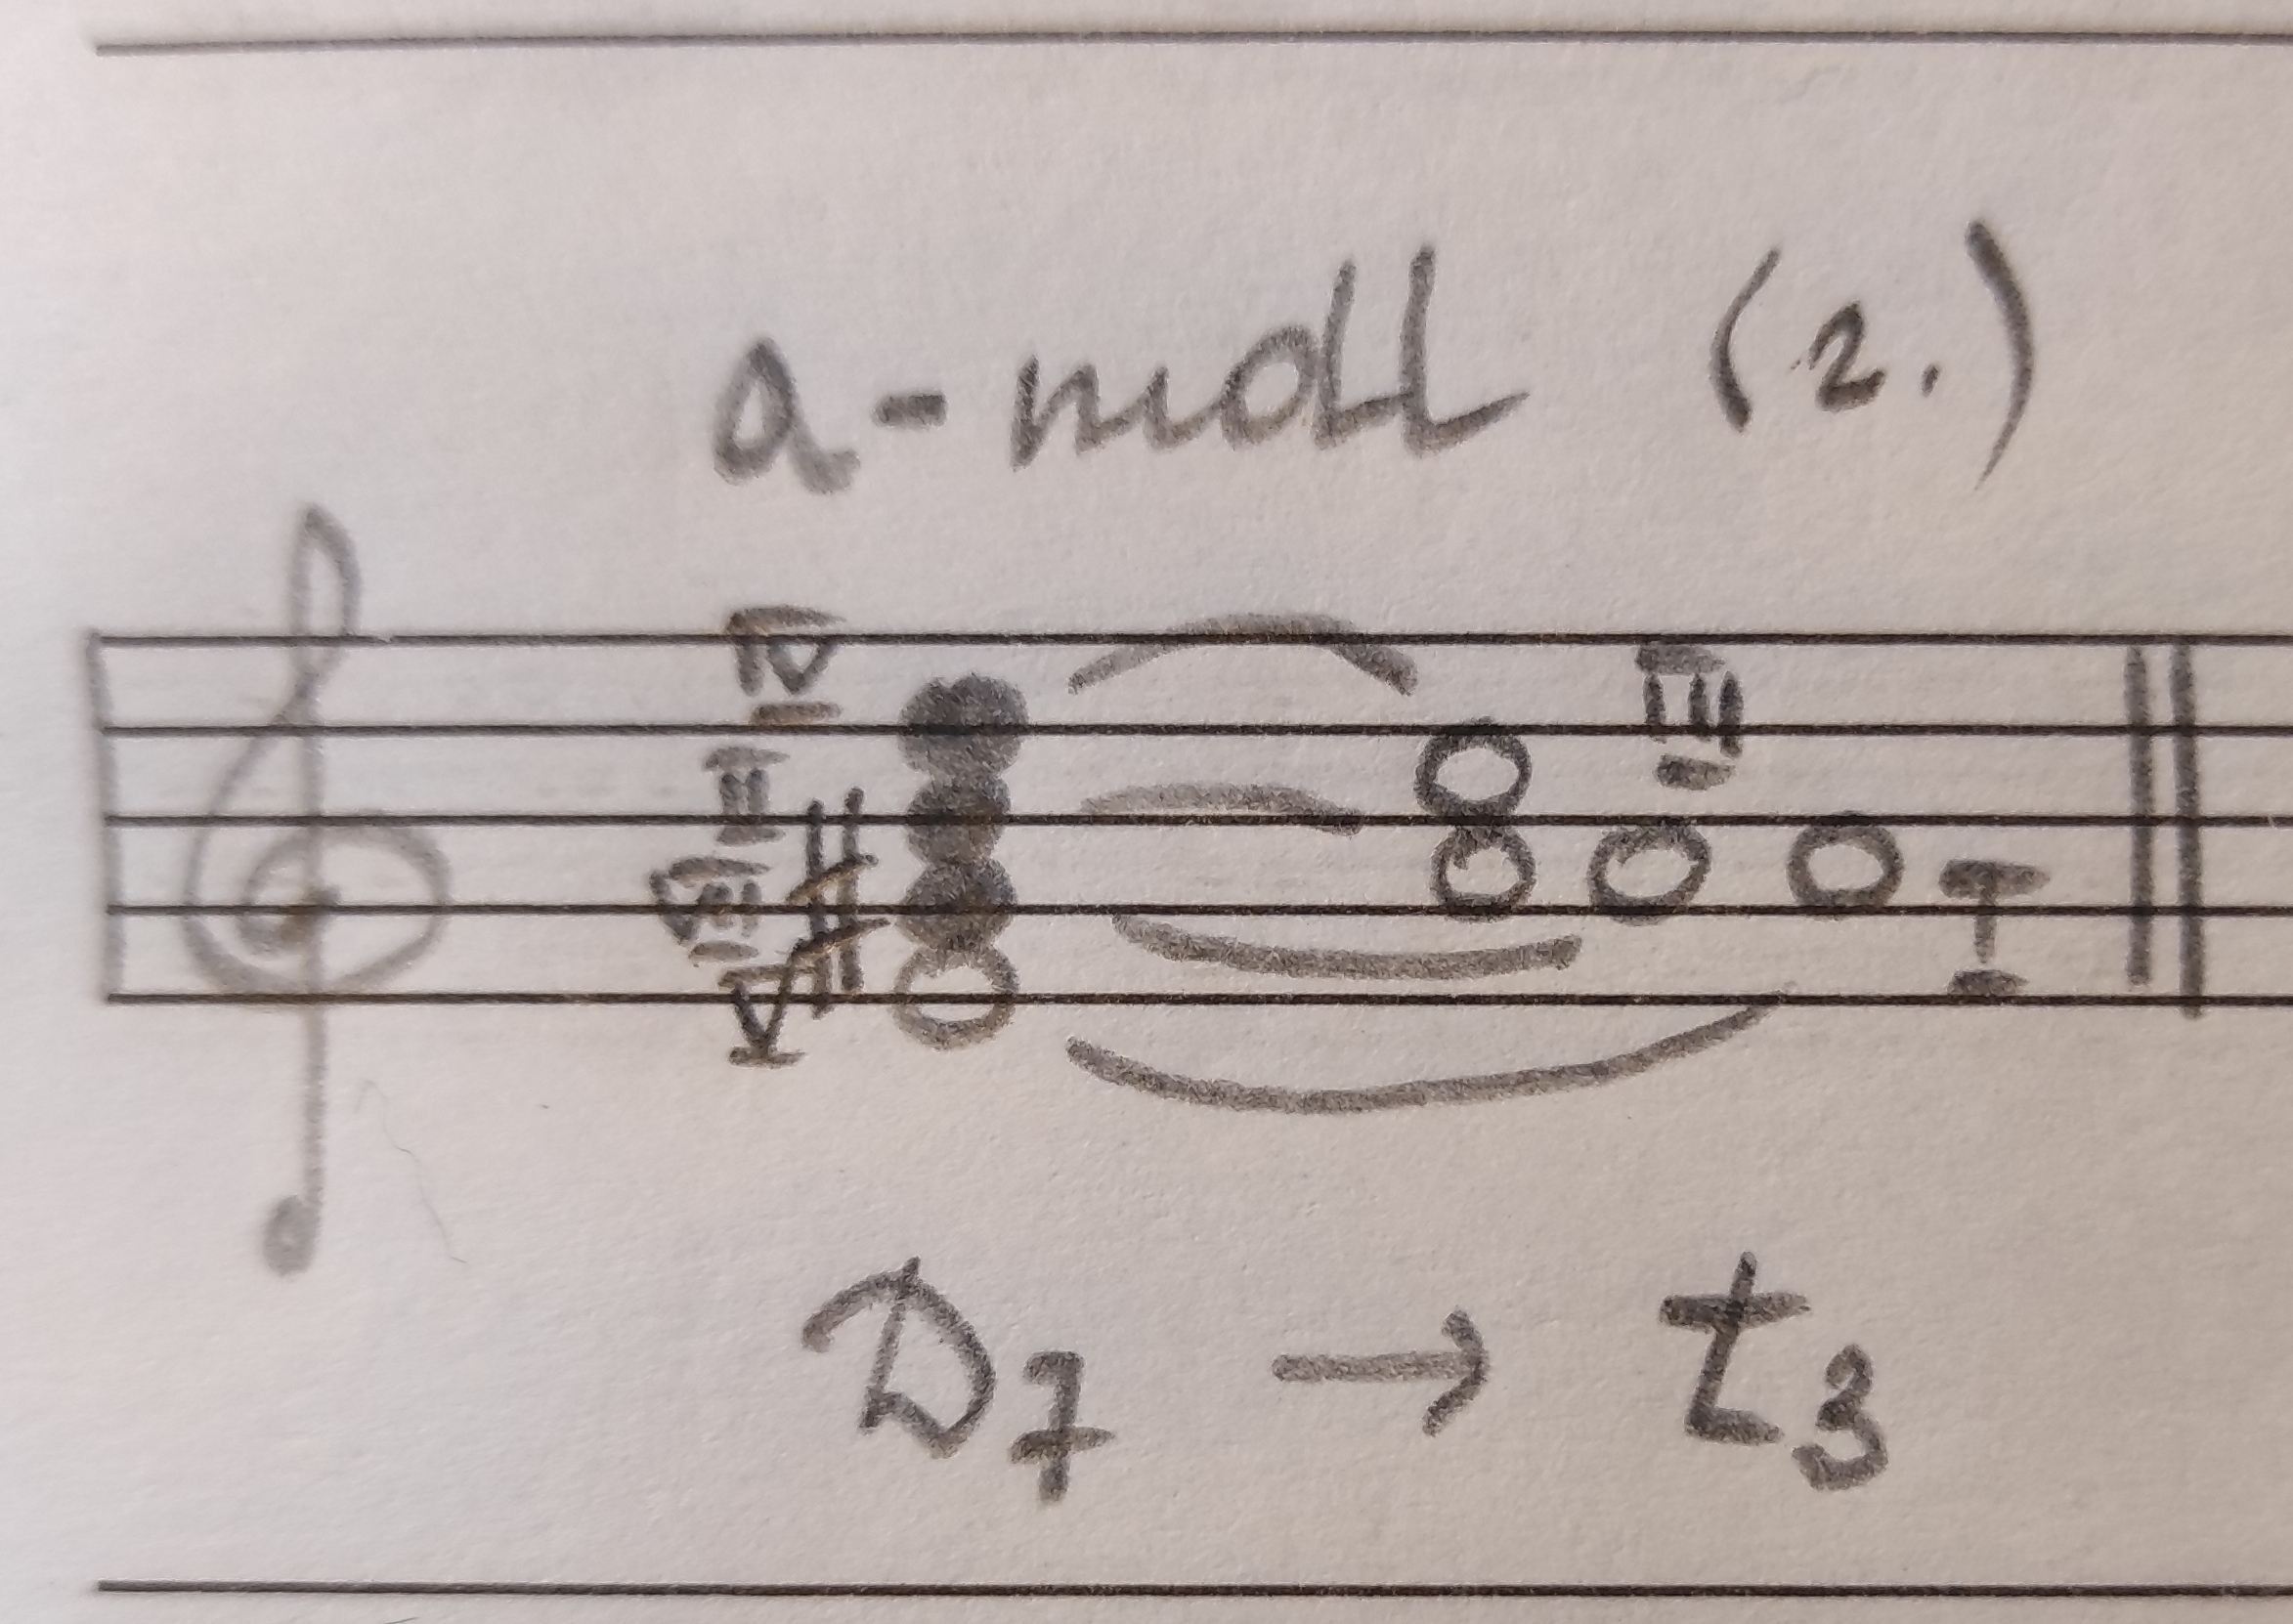 a-moll (2.)
IV
III
II
VII
V
I
D7 → t3